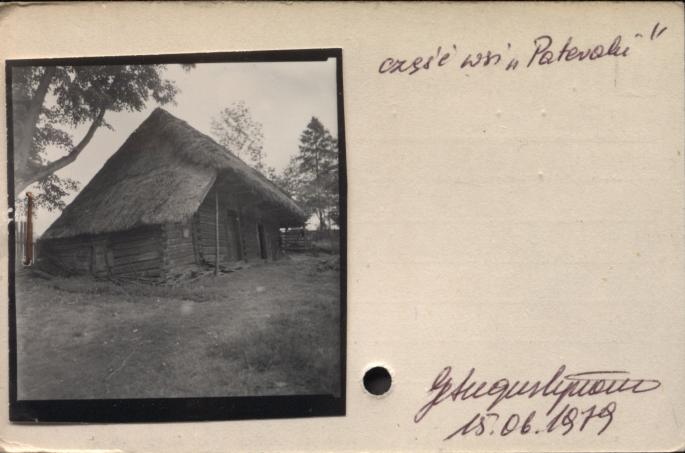 część wsi „Pateraki"
15.06.1979